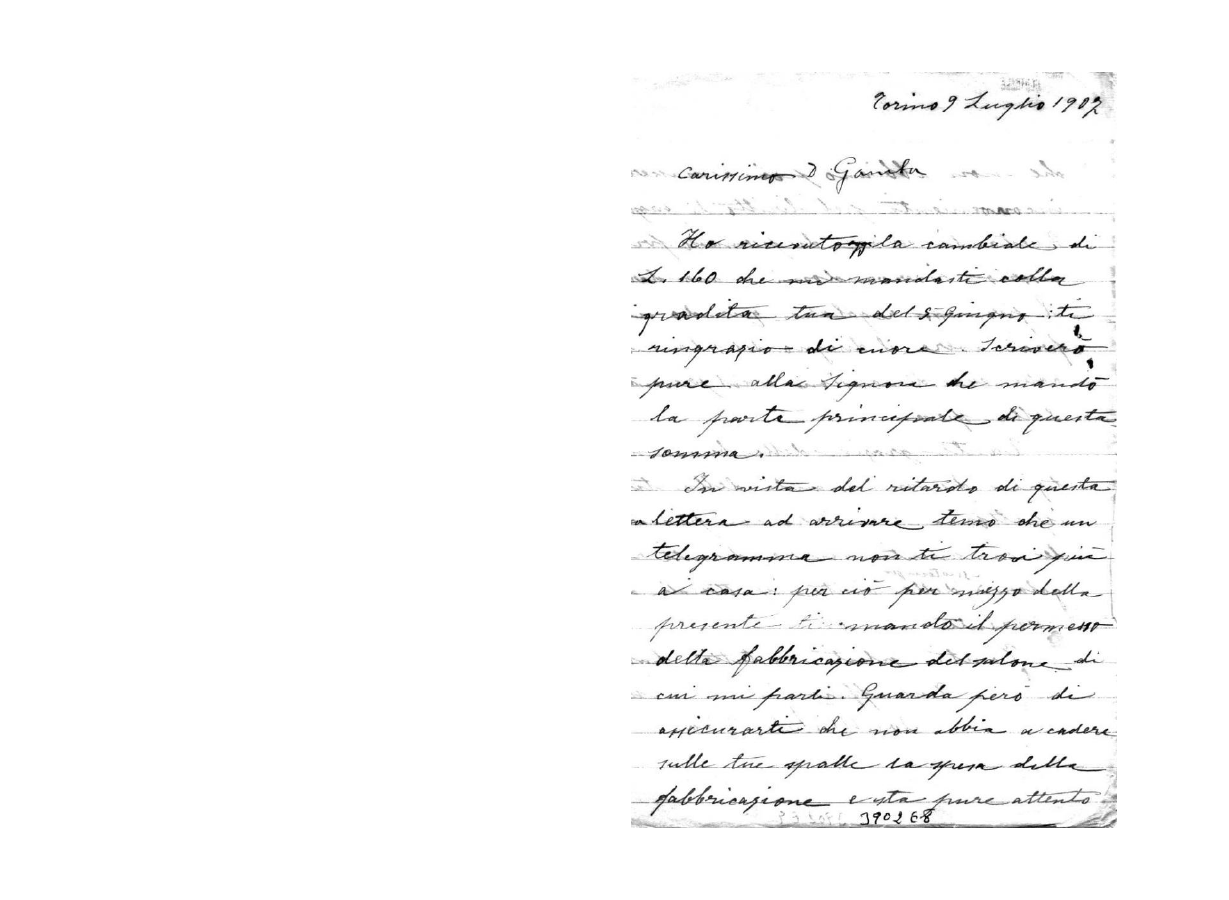 Torino 9 Luglio 1907
Carissimo D Gamba
Ho ricevuto la cambiale di
L. 160 che mi mandasti colla
gradita tua del 5 Giugno: ti
ringrazio di cuore. Scriverò
pure alla Signora che mandò
la parte principale di questa
somma.
In vista del ritardo di questa
lettera ad arrivare temo che un
telegramma non ti trovi più
a casa: per ciò per mezzo della
presente ti mando il permesso
della fabbricazione del salone di
cui mi parli. Guarda però di
assicurarti che non abbia a cadere
sulle tue spalle la spesa della
fabbricazione e sta pure attento
390 2 E 8